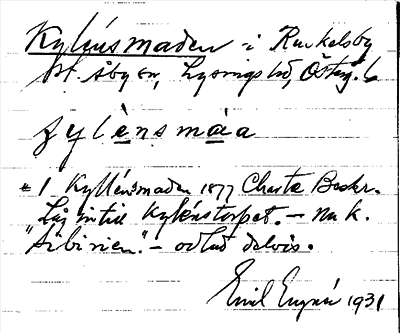 Kylénsmaden i Runkelsby
V. Åby sn, Lysings hd, Östg. 6
ƶylènsmáa
* 1 Kyllénsmaden 1877 Charta Beskr.
Låg intill Kylénstorpet. – Nu k.
"Sibirien". – odlad delvis.
Emil 1931